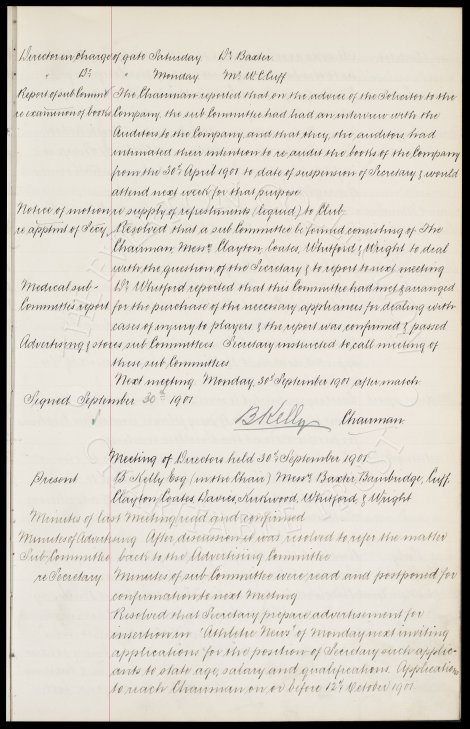 Director in charge of gate Saturday Dr Baxter
" Do " Monday Mr W. C. Cuff
Report of sub Commtt The Chairman reported that on the advice of the Solicitor to the
re examinon of books Company, the sub Committee had had an interview with the
Auditors to the Company, and that they, the auditors, had
intimated their intention to re-audit the books of the Company
from the 30th April 1901 to date of suspension of Secretary & would
attend next week for that purpose.
Notice of motion re supply of refreshments (liquid) to Club
re apptmt of Secy. Resolved that a sub Committee be formed consisting of The
Chairman, Messrs Clayton, Coates, Whitford & Wright to deal
with the question of the Secretary & to report to next meeting
Medical sub- Dr Whitford reported that this Committee had met & arranged
Committee report for the purchase of the necessary appliances for dealing with
cases of injury to players & the report was confirmed & passed
Advertising & stores sub Committees Secretary instructed to call meeting of
these sub Committees
Next meeting Monday 30th September 1901 after match
Signed September 30th 1901
B Kelly Chairman
Meeting of Directors held 30th September 1901
Present B Kelly Esq (in the Chair) Messrs Baxter, Bainbridge, Cuff,
Clayton, Coates, Davies, Kirkwood, Whitford & Wright
Minutes of last Meeting read and confirmed
Minutes of Advertising After discussion it was resolved to refer the matter
Sub Committee back to the Advertising Committee
re Secretary Minutes of sub Committee were read and postponed for
confirmation to next Meeting
Resolved that Secretary prepare advertisement for
insertion in "Athletic News" of Monday next inviting
applications for the position of Secretary such applic-
ants to state age, salary and qualifications. Applications
to reach Chairman on or before 12th October 1901